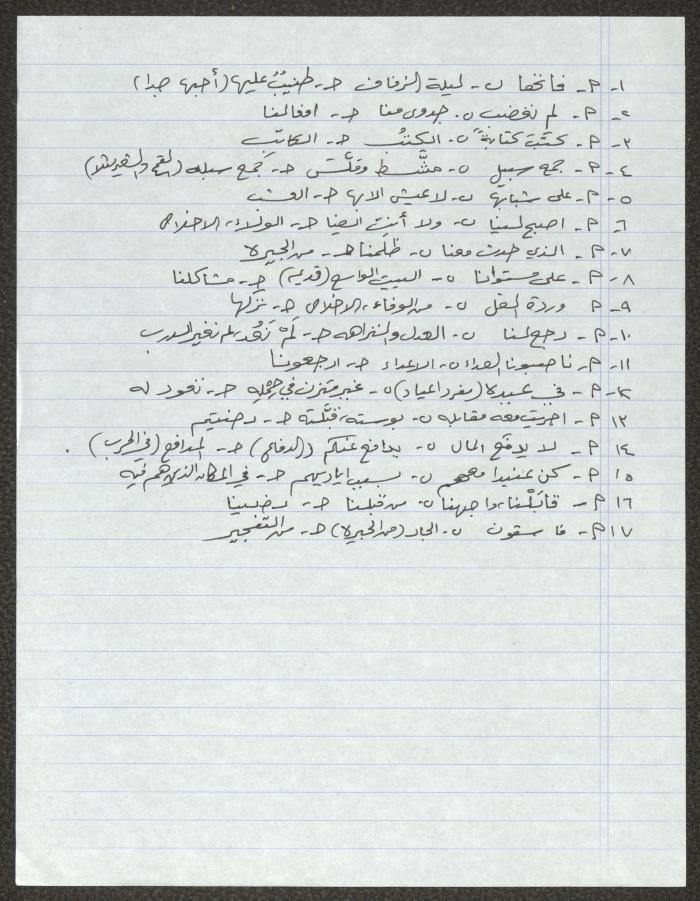 ١- م- فاتحها ن- ليلة الزفاف ح- طنيبٌ عليها (أحبها جدا)
٢- م- لم نغضب ن- جدوى منا ح- افعالنا
٣- م- كتبت كتابةً ن- الكتبُ ح- الكاتب
٤- م- جمع سبيل ن- مشَّط وفلَّس ح- جمع سبله (القمح والشعير مثلا)
٥- م- على شبابها ن- لا عيش الا بها ح- العشب
٦- م- اصبح لسينا ن- ولا أنتِ انسينا ح- الولاء، الاخلاص
٧- م- الذي حدث معنا ن- ظلمنا ح- من الجيرة
٨- م- على مستوانا ن- البيت الواسع (قديم) ح- مشاكلنا
٩- م وردة الفل ن- من الوفاء، الاخلاص ح- نَزَلها
١٠- م- رجع لنا ن- العدل والنزاهه ح- لم نَحُد، لم نغير الدرب
١١- م- ناصبونا العداء ن- الاعداء ح- ارجعونا
١٢- م- في عيده (مفرد اعياد) ن- غير متزن في ح- نعود له
١٣ م- اجريت معه مقابله ن- بوسته، قبَّلته ح- رضيتم
١٤ م- لا يدفع المال ن- يدافع عنكم (الدفاع) ح- المدافع (في الحرب).
١٥ م- كن عنيدا معهم ن- بسبب اياديهم ح- في المكان الذي هم فيه
١٦ م- قابَلْنا، واجهنا ن- من قبلنا ح- رضينا
١٧ م- فاسقون ن- الجار (من الجيرة) ح- من التفجير